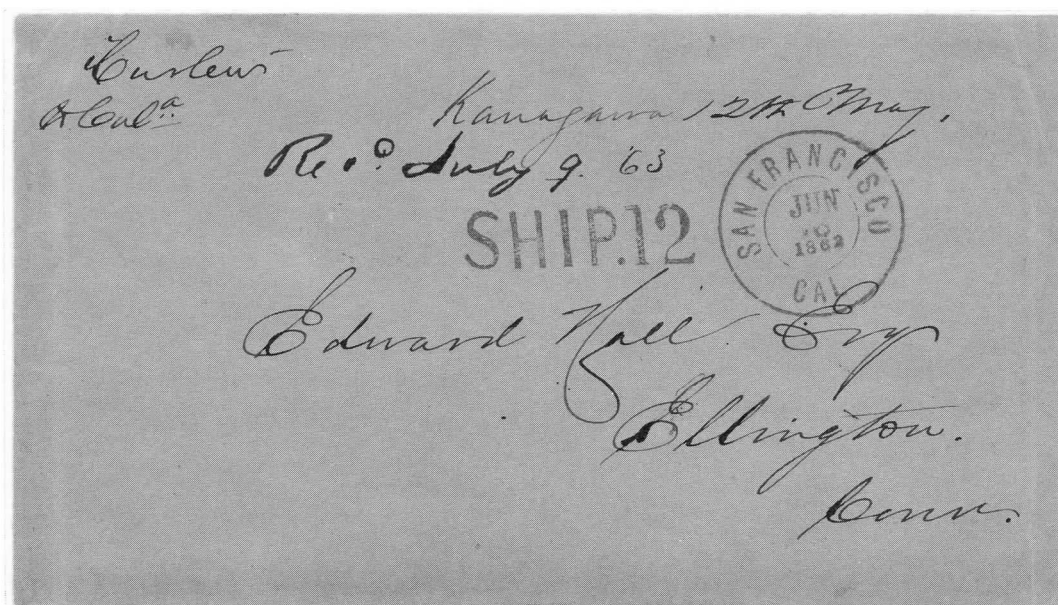 "Curlew"
& Cala
Kanagawa 12th May.
Recd July 9. 63
SHIP.12
SAN FRANCISCO
JUN
1862
CAL
Edward Hall Esq
Ellington.
Conn.